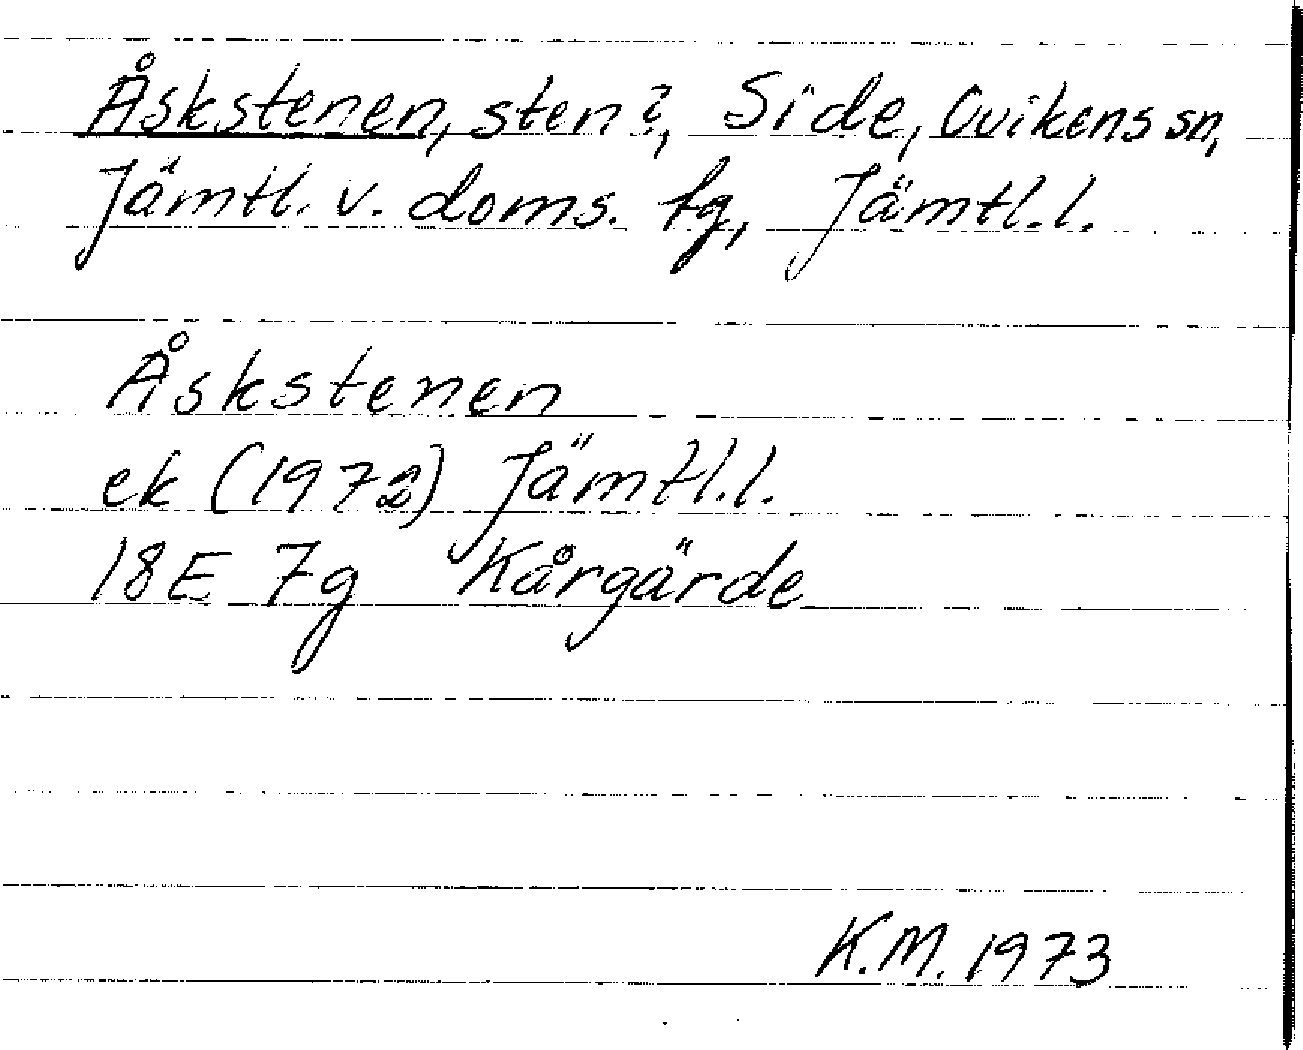 Åskstenen, sten?, Side, Ovikens sn,
Jämtl. v. doms. tg, Jämtl.l.
Åskstenen
ek (1972) Jämtl.l.
18E 7g Kårgärde
K.M. 1973